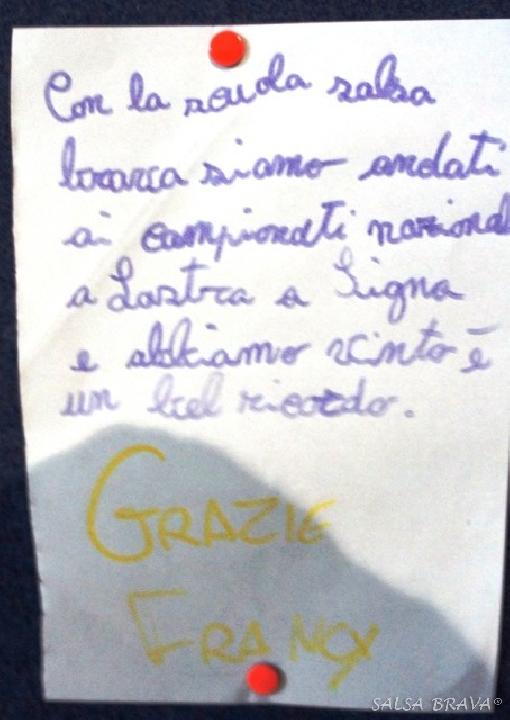 Con la scuola salsa
brava siamo andati
ai campionati nazional
a Lastra a Signa
e abbiamo vinto è
un bel ricordo.
GRAZIE
FRANCY
SALSA BRAVA®